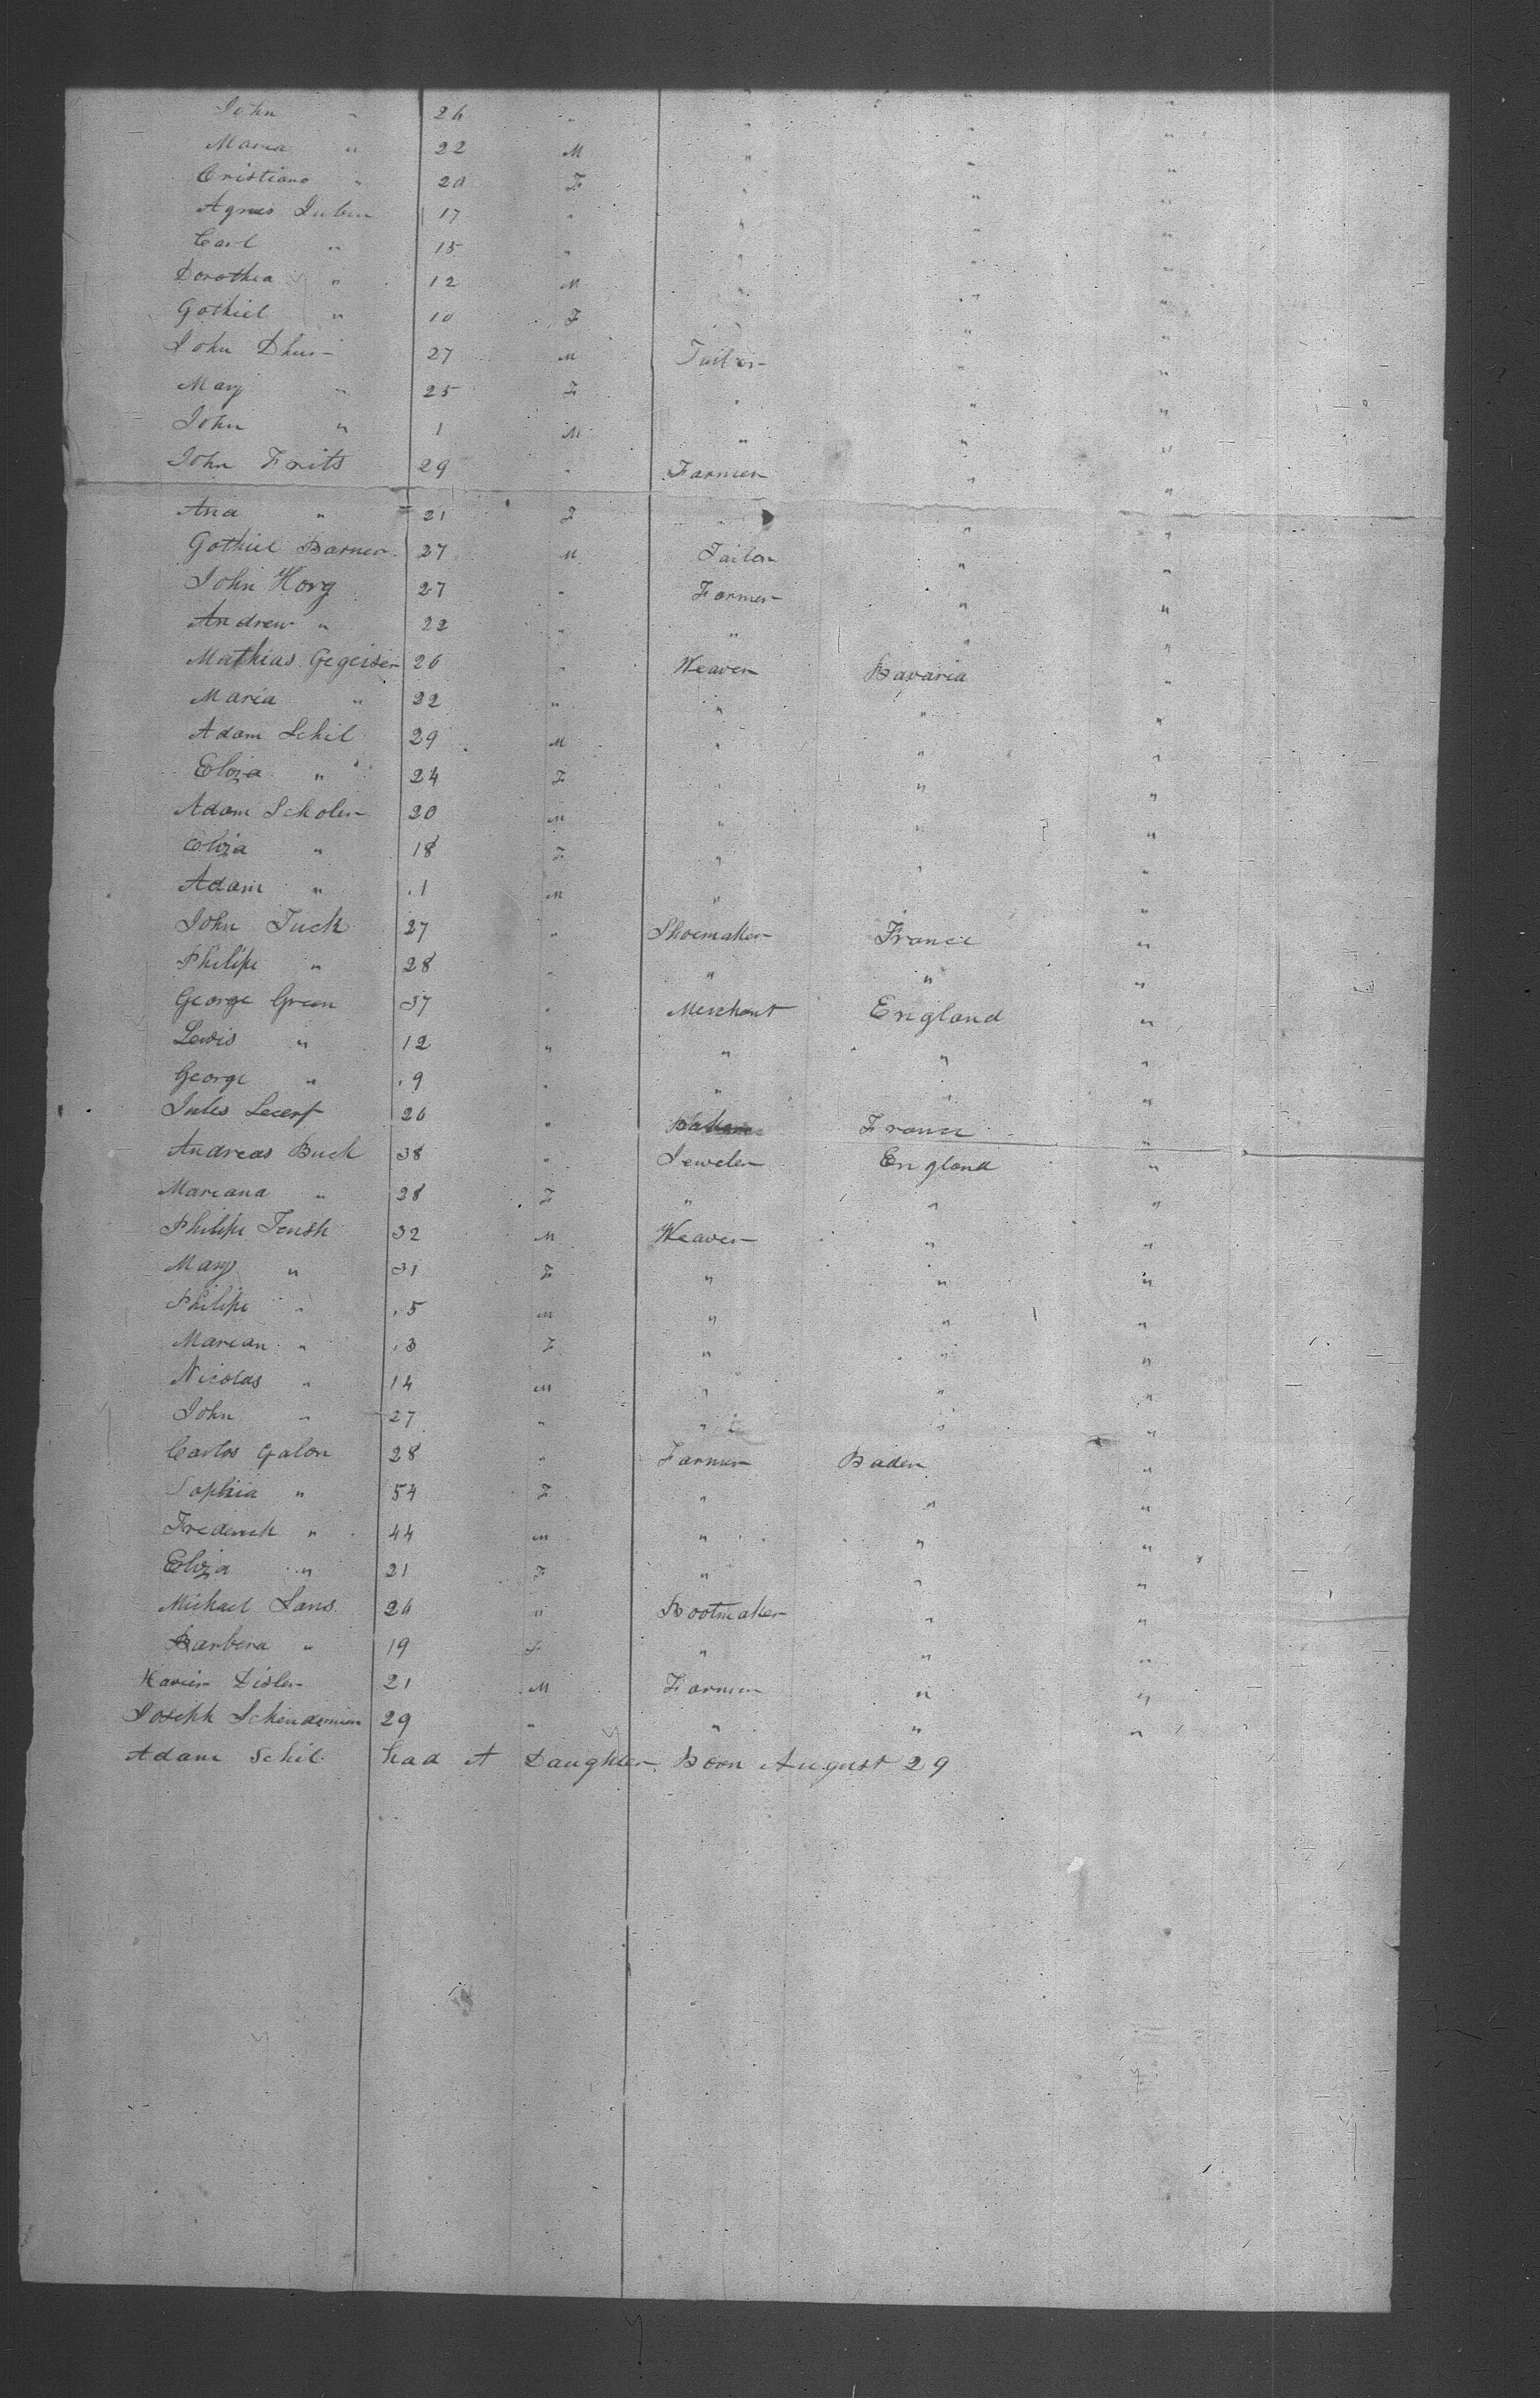 John " 26 " " " "
Maria " 22 M " " "
Cristiano " 20 F " " "
Agnes 17 " " " "
Carl " 15 " " " "
Dorothea " 12 M " " "
Gothiel " 10 F " " "
John 27 M Tailor " "
Mary " 25 F " " "
John " 1 M " " "
John Frits 29 " Farmer " "
Ana " 21 F " " "
Gothiel Barner 27 M Tailor " "
John Horg 27 " Farmer " "
Andrew " 22 " " " "
Mathias Gegeiser 26 " Weaver Bavaria "
Maria " 22 " " " "
Adam Schil 29 M " " "
Eliza " 24 F " " "
Adam Scholer 20 M " " "
Eliza " 18 F " " "
Adam " .1 M " " "
John Tuck 27 " Shoemaker France "
Philipe " 28 " " " "
George Green 37 " Merchant England "
Lewis " 12 " " " "
George " .9 " " " "
Jules Lecerf 26 " France "
Andreas Buck 38 " Jeweler England "
Mariana " 28 F " " "
Philipe Tensh 32 M Weaver " "
Mary " 31 F " " "
Philipe " .5 M " " "
Marian " .3 F " " "
Nicolas " 14 M " " "
John " 27 " " " "
Carlos Galon 28 " Farmer Baden "
Sophia " 54 F " " "
Frederick " 44 M " " "
Eliza " 21 F " " "
Michael Lans 26 " Bootmaker " "
Barbera " 19 F " " "
Xavier Disler 21 M Farmer " "
Joseph 29 " " " "
Adam Schil had A Daughter Born August 29